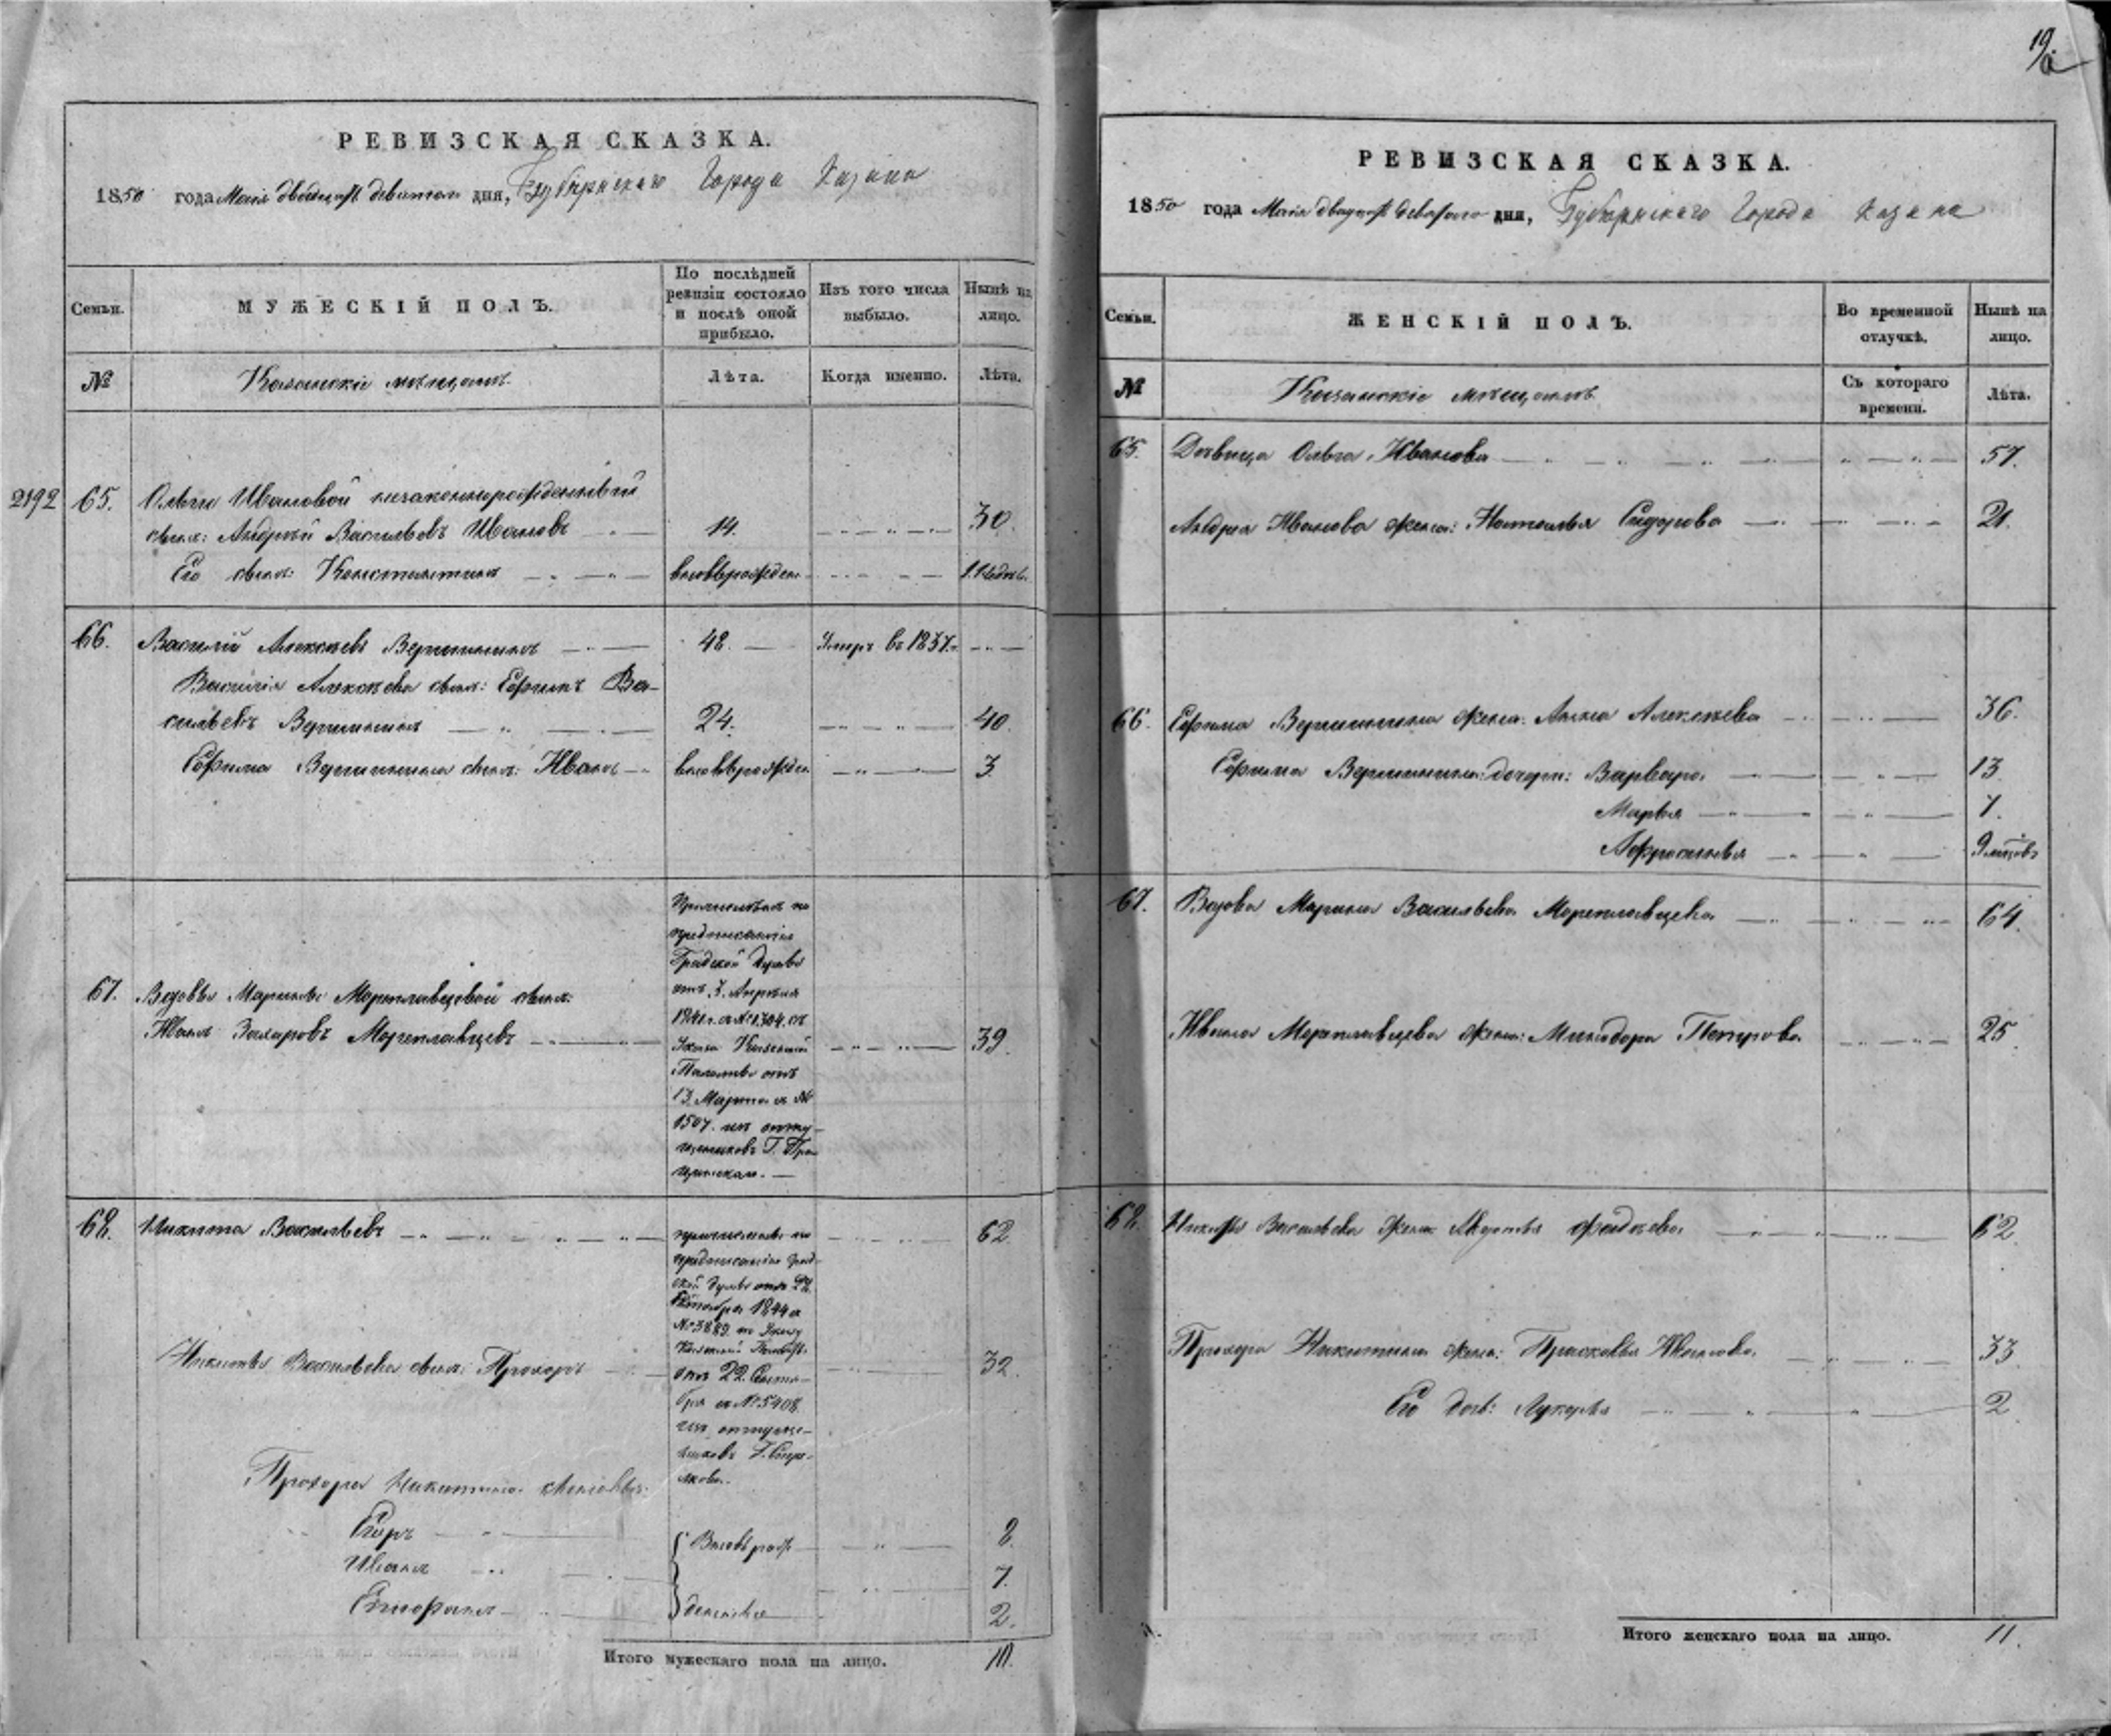 РЕВИЗСКАЯ СКАЗКА.
1850 года Маія двадцать девятаго дня, Губернскаго Города Казани
Семьи.
МУЖЕСКІЙ ПОЛЪ.
По послѣдней
ревизіи состояло
и послѣ оной
прибыло.
Изъ того числа
выбыло.
Нынѣ на
лицо.
№
Казанскіе мѣщане.
Лѣта.
Когда именно.
Лѣта.
2192
65. Ольги Ивановой незаконнорожденный
сынъ: Андрей Васильевъ Ивановъ 14. 30.
Его сынъ: Константинъ вновьрожден.
66. Василій Алексѣевъ Вершининъ 48. Умеръ въ 1837.
Василія Алексѣева сынъ: Ефимъ Ва-
сильевъ Вершининъ 24. 40.
Ефима Вершинина сынъ: Иванъ вновьрожден. 3.
67. Вдовы Марины Мореплавцевой сынъ:
Иванъ Захаровъ Мореплавцевъ 39.
Причисленъ по
предписанію
Градской Думы
отъ 7. Апрѣля
1841 г. за № 1304. съ
Указа Казенной
Палаты отъ
13. Марта за №
1507. изъ отпу-
щенниковъ Г.
68. Никита Васильевъ 62.
причислены по
предписанію Град-
ской Думы отъ
Октября 1844 за
№ 3889. по Указу
Казенной Палаты
отъ 22. Сентя-
бря за № 5408.
изъ отпуще-
нниковъ Г.
Никиты Васильева сынъ: Прохоръ 32.
Прохора Никитина сыновья:
Егоръ 8.
Иванъ 7.
Епифанъ 2.
Вновьрож-
денные
Итого мужескаго пола на лицо. 10.
19
РЕВИЗСКАЯ СКАЗКА.
1850 года Маія двадцать девятаго дня, Губернскаго Города Казани
Семьи.
ЖЕНСКІЙ ПОЛЪ.
Во временной
отлучкѣ.
Нынѣ на
лицо.
№
Казанскіе мѣщане.
Съ котораго
времени.
Лѣта.
65. Дѣвица Ольга Иванова 57.
Андрея Иванова жена: Наталья Сидорова 21.
66. Ефима Вершинина жена: Анна Алексѣева 36.
Ефима Вершинина дочери: Варвара 13
Марья 7.
Афросинья 9 мѣсяцовъ
67. Вдова Марина Васильева Мореплавцева 64.
Ивана Мореплавцева жена: Минодора Петрова 25.
68. Никиты Васильева жена: Авдотья Фадѣева 62.
Прохора Никитина жена: Прасковья Иванова 33
Его дочь: Лукерья 2
Итого женскаго пола на лицо. 11.